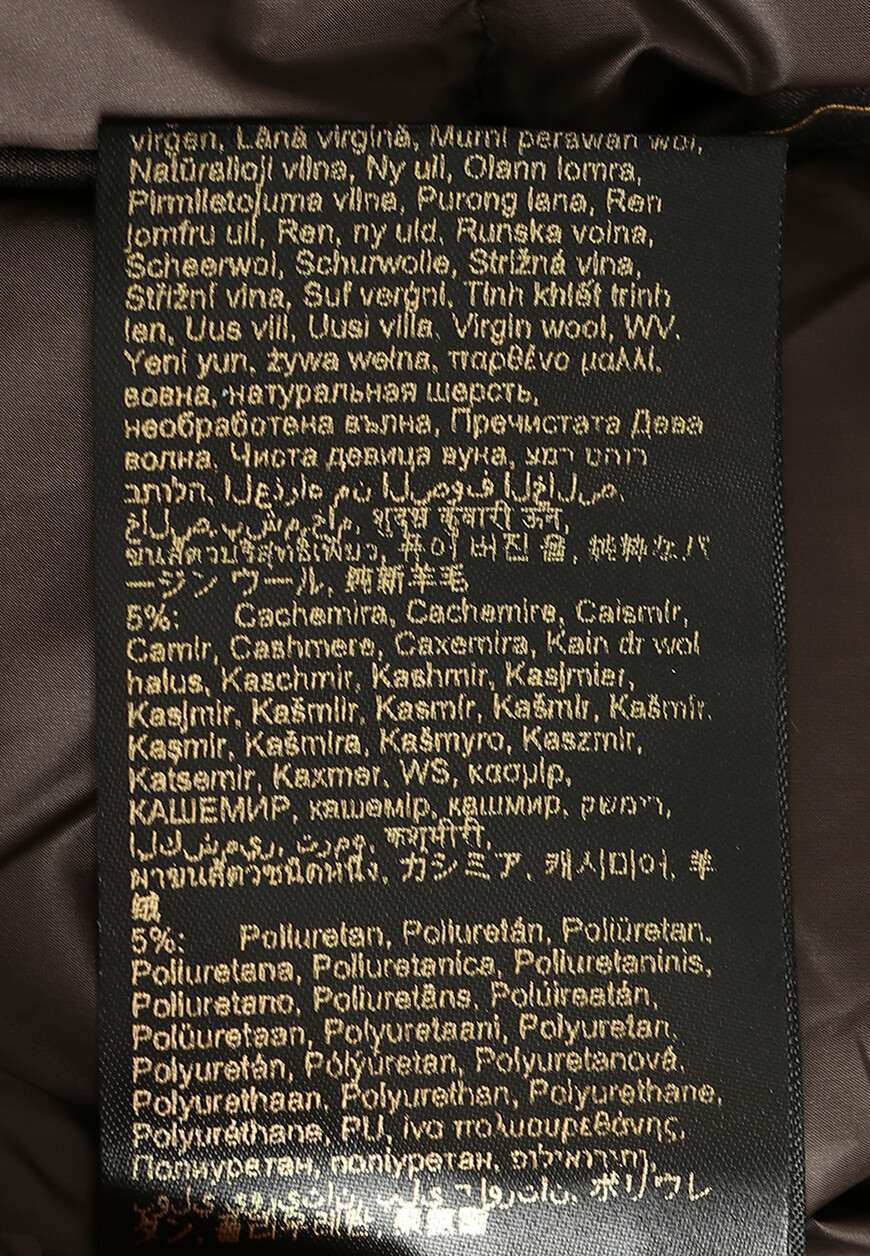 virgen, Lână virgină, Murni perawan wol,
Natūralioji vilna, Ny ull, Olann lomra,
Pirmlietojuma vilna, Purong lana, Ren
jomfru ull, Ren, ny uld, Runska volna,
Scheerwol, Schurwolle, Strižná vlna,
Střižní vlna, Suf verġni, Tinh khiết trinh
len, Uus vill, Uusi villa, Virgin wool, WV,
Yeni yun, żywa wełna, παρθένο μαλλί,
вовна, натуральная шерсть,
необработена вълна, Пречистата Дева
волна, Чиста девица вуна, צמר טהור
בתולה,
शुद्ध कुंवारी ऊन,
순수한 버진 울, 純粋なバ
ージン ウール, 纯新羊毛
5%: Cachemira, Cachemire, Caismír,
Camir, Cashmere, Caxemira, Kain dr wol
halus, Kaschmir, Kashmir, Kasjmier,
Kasjmir, Kašmiir, Kasmír, Kašmir, Kašmír,
Kaşmir, Kašmira, Kašmyro, Kaszmir,
Katsemir, Kaxmer, WS, κασμίρ,
КАШЕМИР, кашемір, кашмир, קשמיר,
कश्मीरी,
ผ้าขนสัตว์ชนิดหนึ่ง, カシミア, 캐시미어, 羊
绒
5%: Poliuretan, Poliuretán, Poliüretan,
Poliuretana, Poliuretanica, Poliuretaninis,
Poliuretano, Poliuretāns, Polúireatán,
Polüuretaan, Polyuretaani, Polyuretan,
Polyuretán, Pólýúretan, Polyuretanová,
Polyurethaan, Polyurethan, Polyurethane,
Polyuréthane, PU, ίνα πολυουρεθάνης,
Полиуретан, поліуретан, פוליאוריתן,
ポリウレ
タン, 폴리우레탄, 聚氨酯